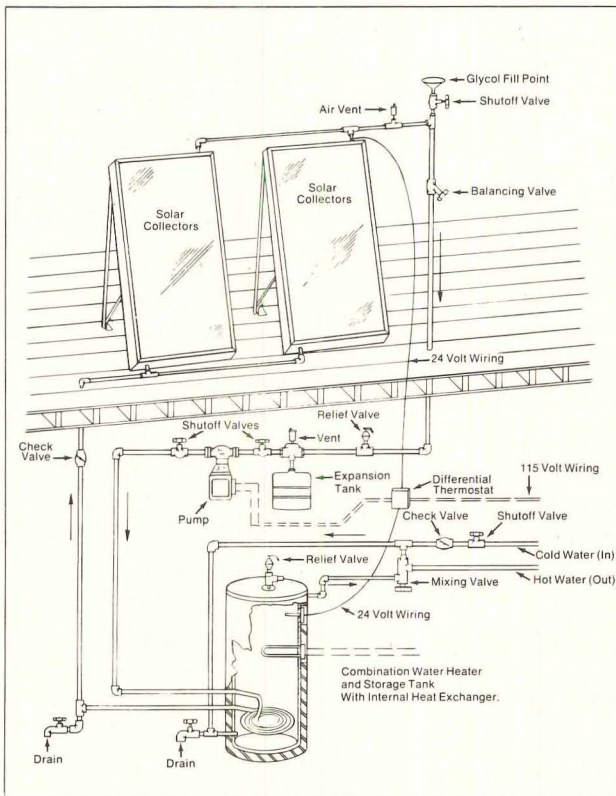 Glycol Fill Point
Air Vent
Shutoff Valve
Solar
Collectors
Solar
Collectors
Balancing Valve
24 Volt Wiring
Shutoff Valves
Relief Valve
Vent
Check
Valve
Expansion
Tank
Differential
Thermostat
115 Volt Wiring
Pump
Check Valve
Shutoff Valve
Cold Water (In)
Relief Valve
Mixing Valve
Hot Water (Out)
24 Volt Wiring
Combination Water Heater
and Storage Tank
With Internal Heat Exchanger.
Drain
Drain